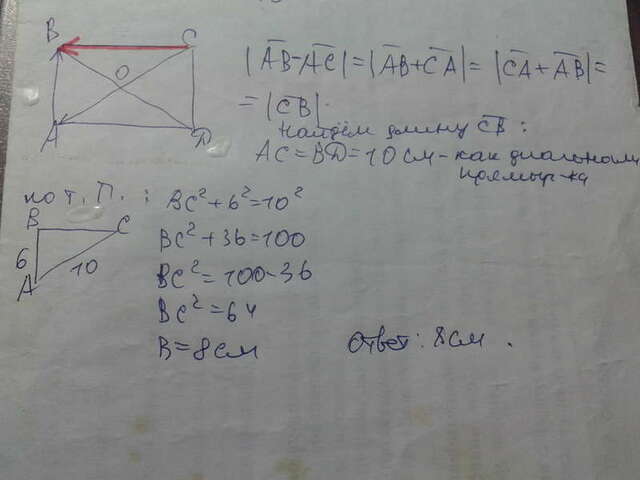 B C
O
A D
|AB̅-AC̅|=|AB̅+CA̅|=|CA̅+AB̅|=
=|CB̅|.
Найдём длину CB̅:
AC=BD=10 см - как диагонали
прямоуг-ка
по т. П.:
BC²+6²=10²
B C
BC²+36=100
6
10
A
BC²=100-36
BC²=64
B=8см
Ответ: 8см.